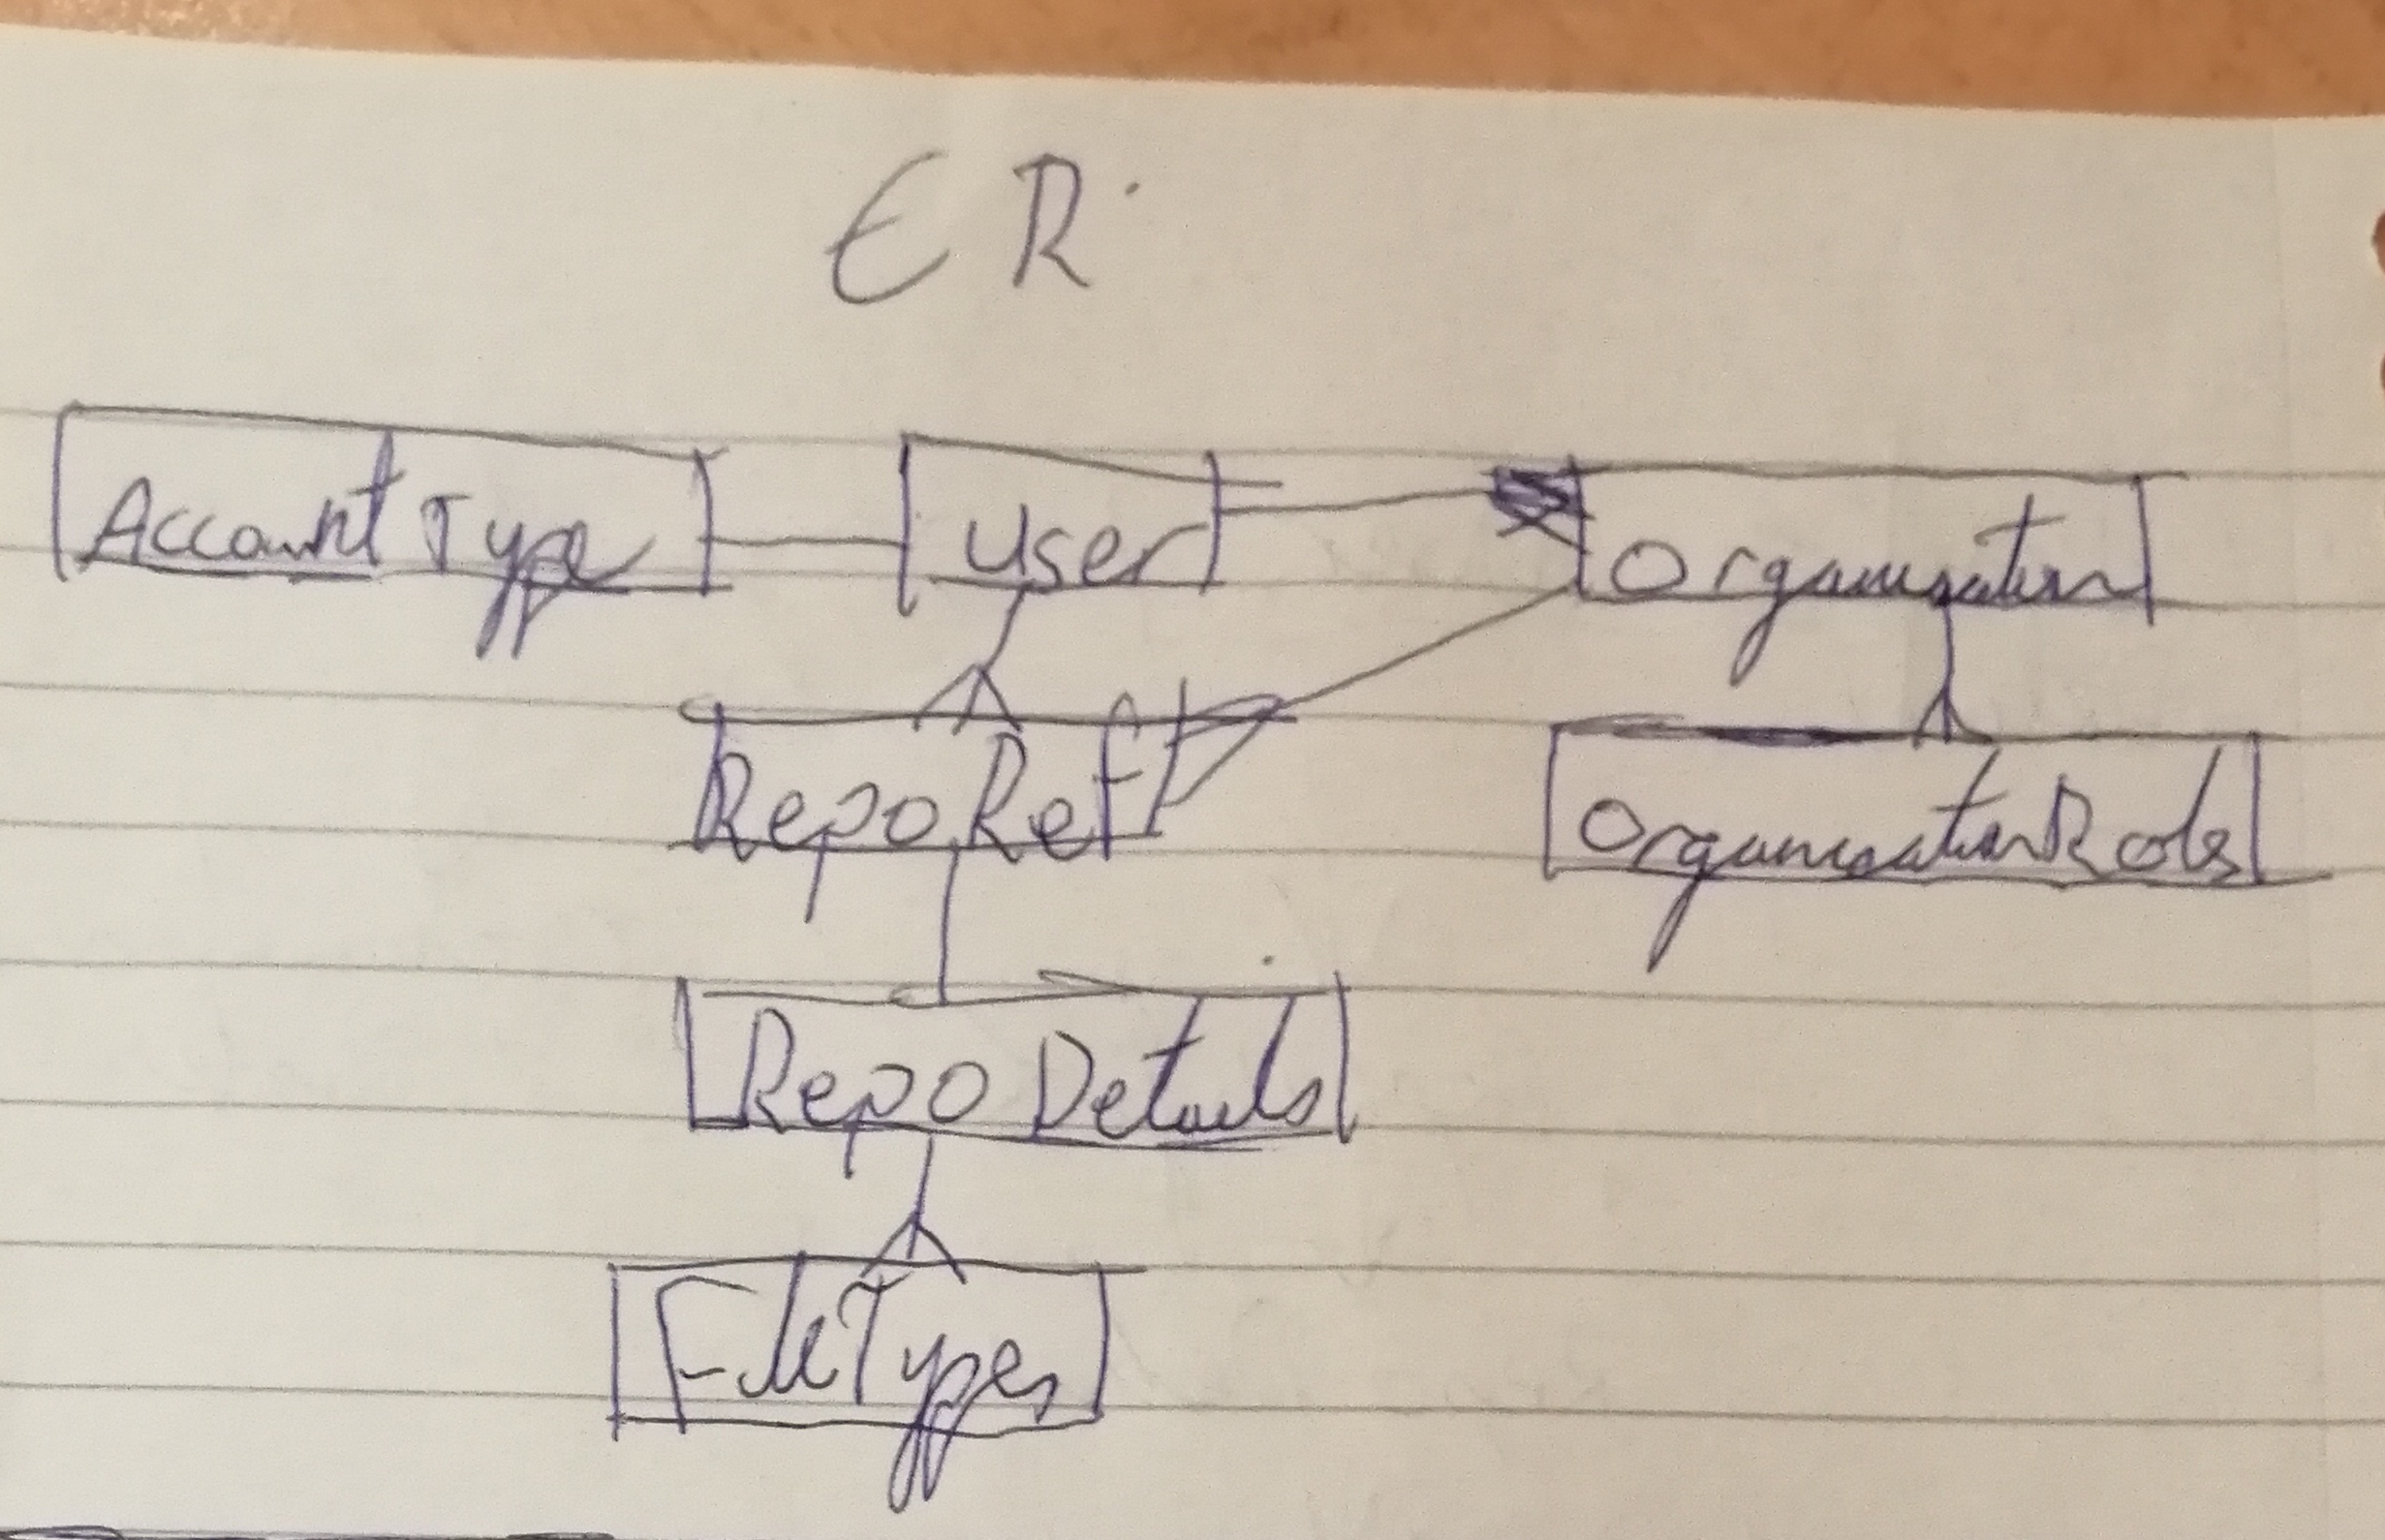 ER
Account Type User Organisation
Repo Ref OrganisationRoles
Repo Details
FileTypes